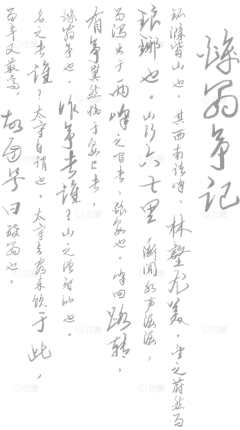 醉翁亭记
环滁皆山也。其西南诸峰，林壑尤美，望之蔚然而
琅琊也。山行六七里，渐闻水声潺潺，
而泻出于两峰之间者，酿泉也。峰回路转，
有亭翼然临于泉上者，
醉翁亭也。作亭者谁？山之僧智仙也。
名之者谁？太守自谓也。太守与客来饮于此，
而年又最高，故自号曰醉翁也。